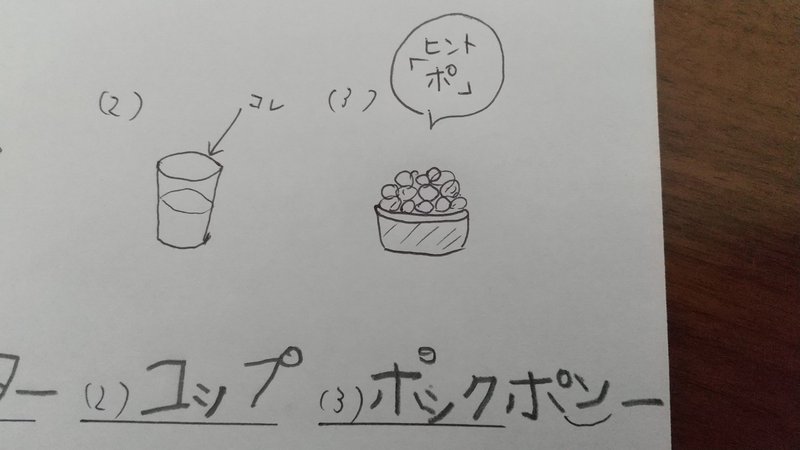 (2)
コレ
(3)
ヒント
「ポ」
ター
(2) コップ
(3) ポックポンー